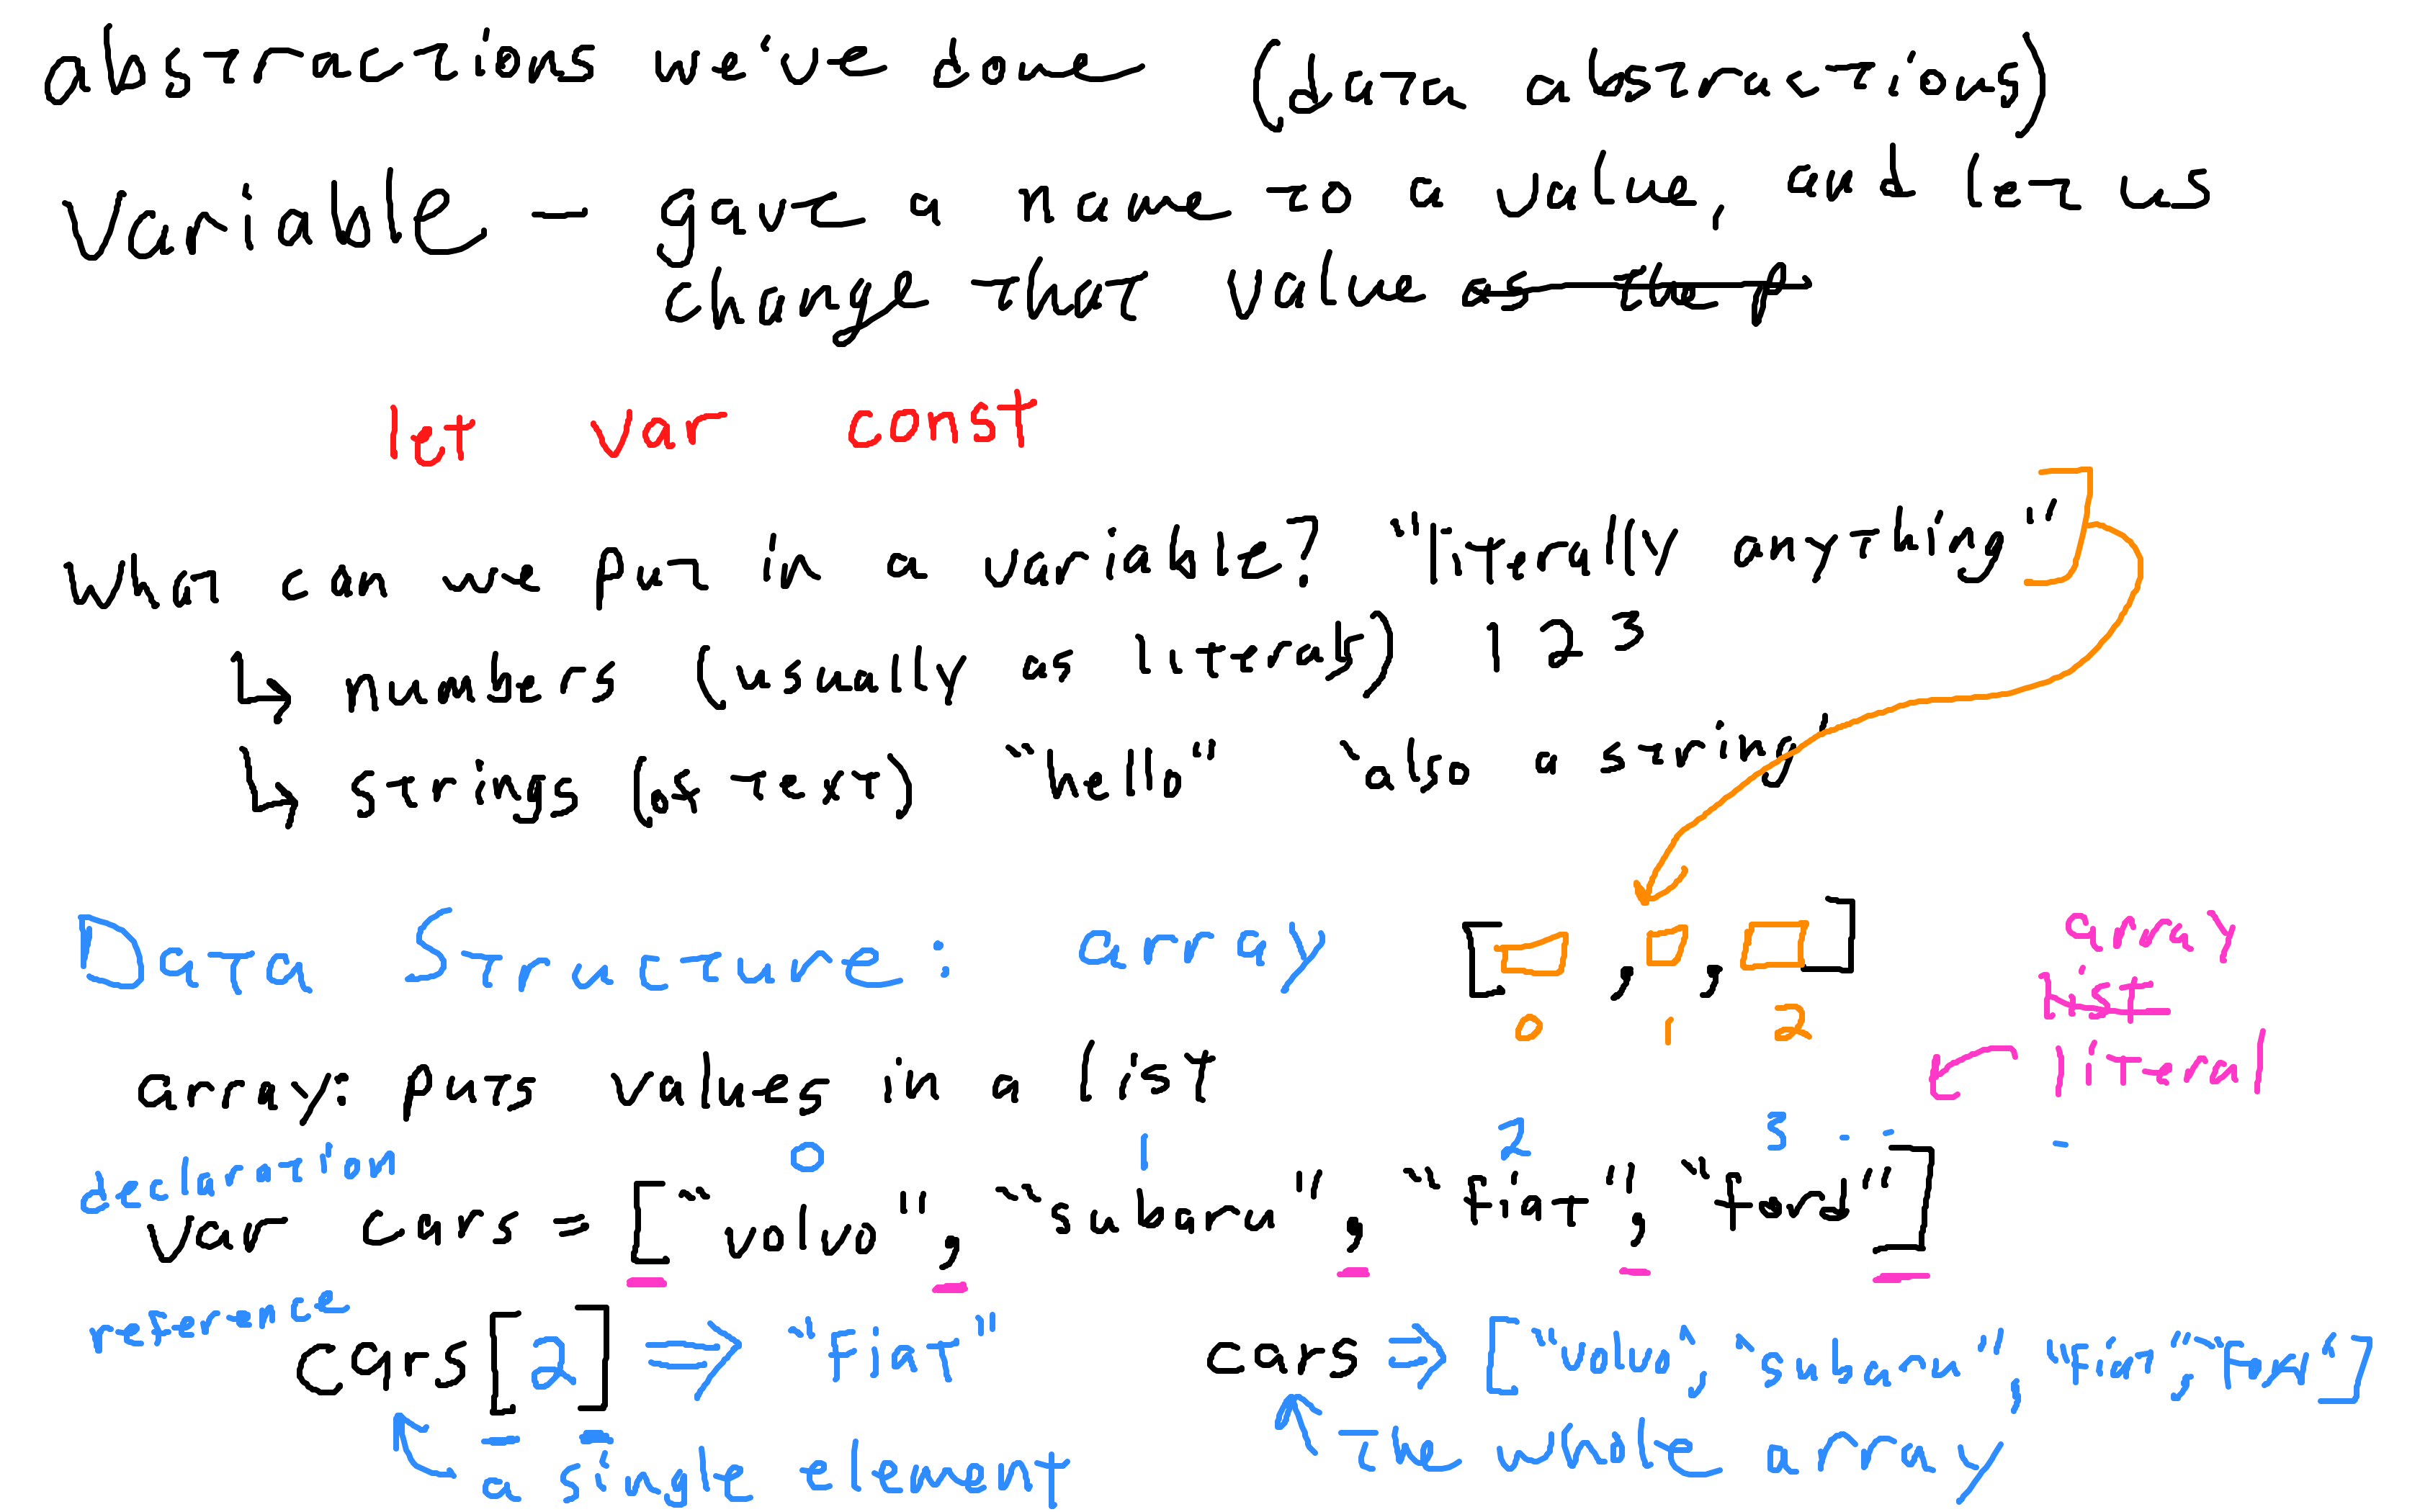 abstractions we've done (data abstractions)
variable — gave a name to a value, and let us
change that value as the p
let var const
what can we put in a variable? "literally anything"
↳ numbers (usually as literals) 1 2 3
↳ strings (as text) "hello" "also a string"
Data Structure: array [ , , ]
0 1 2
array
list
literal
array: puts values in a list
declaration 0 1 2 3 - - -
var cars = ["volvo", "subaru", "fiat", "ford"]
reference
cars[2] ⇒ "fiat" cars ⇒ ["volvo", "subaru", "fiat", "ford"]
a single element the whole array